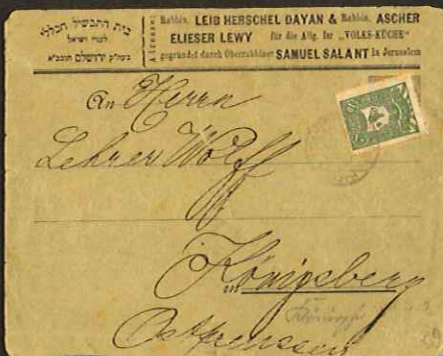 בית התבשיל הכללי
לעניי ישראל
בעה״ק ירושלם תובב״א
Adresse:
Rabbin. LEIB HERSCHEL DAYAN & Rabbin. ASCHER
ELIESER LEWY für die Allg. Isr „VOLKS-KÜCHE“
gegründet durch Oberrabbiner SAMUEL SALANT in Jerusalem
An Herrn
Lehrer Wolff
in Königsberg
Ostpreussen